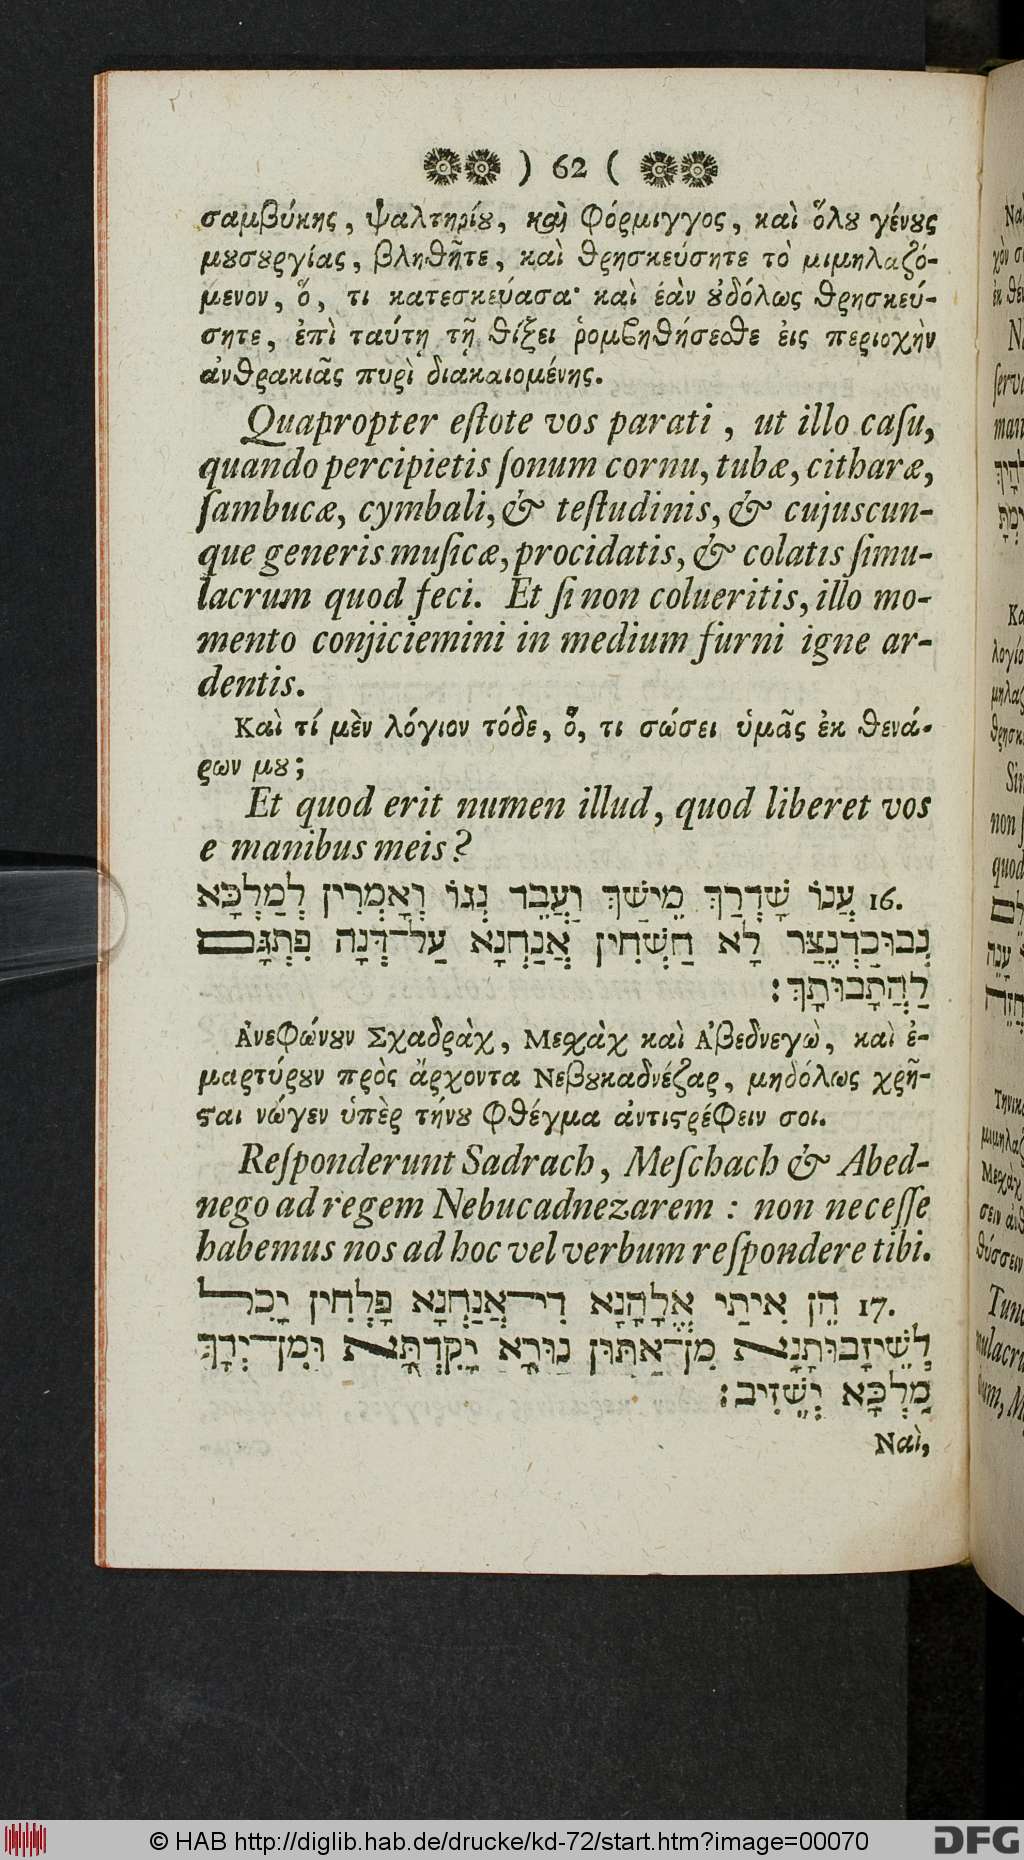 ) 62 (
σαμβύκης, ψαλτηρίȣ, καὶ Φόρμιγγος, καὶ ὅλȣ γένȣς
μȣσȣργίας, βληθῆτε, καὶ θρησκεύσητε τὸ μιμηλαζό-
μενον, ὅ, τι κατεσκεύασα· καὶ ἐὰν ȣδόλως θρησκεύ-
σητε, ἐπὶ ταύτῃ τῇ θίξει ῥομβηθήσεσθε ἐις περιοχὴν
ἀνθρακιᾶς πυρὶ διακαιομένης.
Quapropter eſtote vos parati, ut illo caſu,
quando percipietis ſonum cornu, tubæ, citharæ,
ſambucæ, cymbali, & teſtudinis, & cujuscun-
que generis muſicæ, procidatis, & colatis ſimu-
lacrum quod feci. Et ſi non colueritis, illo mo-
mento conjiciemini in medium furni igne ar-
dentis.
Καὶ τί μὲν λόγιον τόδε, ὅ, τι σώσει ὑμᾶς ἐκ θενά-
ρων μȣ;
Et quod erit numen illud, quod liberet vos
e manibus meis?
16. עֲנוֹ שָׁדְרַךְ מֵישַׁךְ וַעֲבֵד נְגוֹ וְאָמְרִין לְמַלְכָּא
נְבוּכַדְנֶצַּר לָא חַשְׁחִין אֲנַחְנָא עַל־דְּנָה פִּתְגָּם
לַהֲתָבוּתָךְ׃
Ἀνεφώνȣν Σχαδρὰχ, Μεσχὰχ καὶ Ἀβεδνεγὼ, καὶ ἐ-
μαρτύρȣν πρὸς ἄρχοντα Νεβȣκαδνέζαρ, μηδόλως χρῆ-
ϛαι νώγεν ὑπὲρ τήνȣ φθέγμα ἀντιϛρέφειν σοι.
Reſponderunt Sadrach, Meſchach & Abed-
nego ad regem Nebucadnezarem : non neceſſe
habemus nos ad hoc vel verbum reſpondere tibi.
17. הֵן אִיתַי אֱלָהָנָא דִּי־אֲנַחְנָא פָּלְחִין יָכִל
לְשֵׁיזָבוּתָנָא מִן־אַתּוּן נוּרָא יָקִדְתָּא וּמִן־יְדָךְ
מַלְכָּא יְשֵׁזִיב׃
Ναὶ,
© HAB http://diglib.hab.de/drucke/kd-72/start.htm?image=00070
DFG